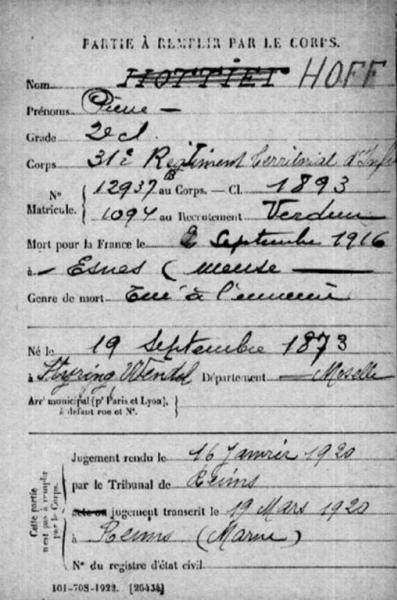 PARTIE À REMPLIR PAR LE CORPS.
Nom HOTTIET HOFF
Prénoms Pierre
Grade 2e cl.
Corps 31e Régiment Territorial d'Infie
N° Matricule. { 12937 B au Corps. — Cl. 1893
1094 au Recrutement Verdun
Mort pour la France le 2 Septembre 1916
à Esnes (Meuse
Genre de mort Tué à l'ennemi
Né le 19 Septembre 1873
à Styring Wendel Département Moselle
Arr' municipal (p' Paris et Lyon), à défaut rue et N°.
Cette partie n'est pas à remplir par le Corps.
Jugement rendu le 16 Janvier 1920
par le Tribunal de Reims
acte ou jugement transcrit le 19 Mars 1920
à Reims (Marne)
N° du registre d'état civil
101-708-1922. [26434]